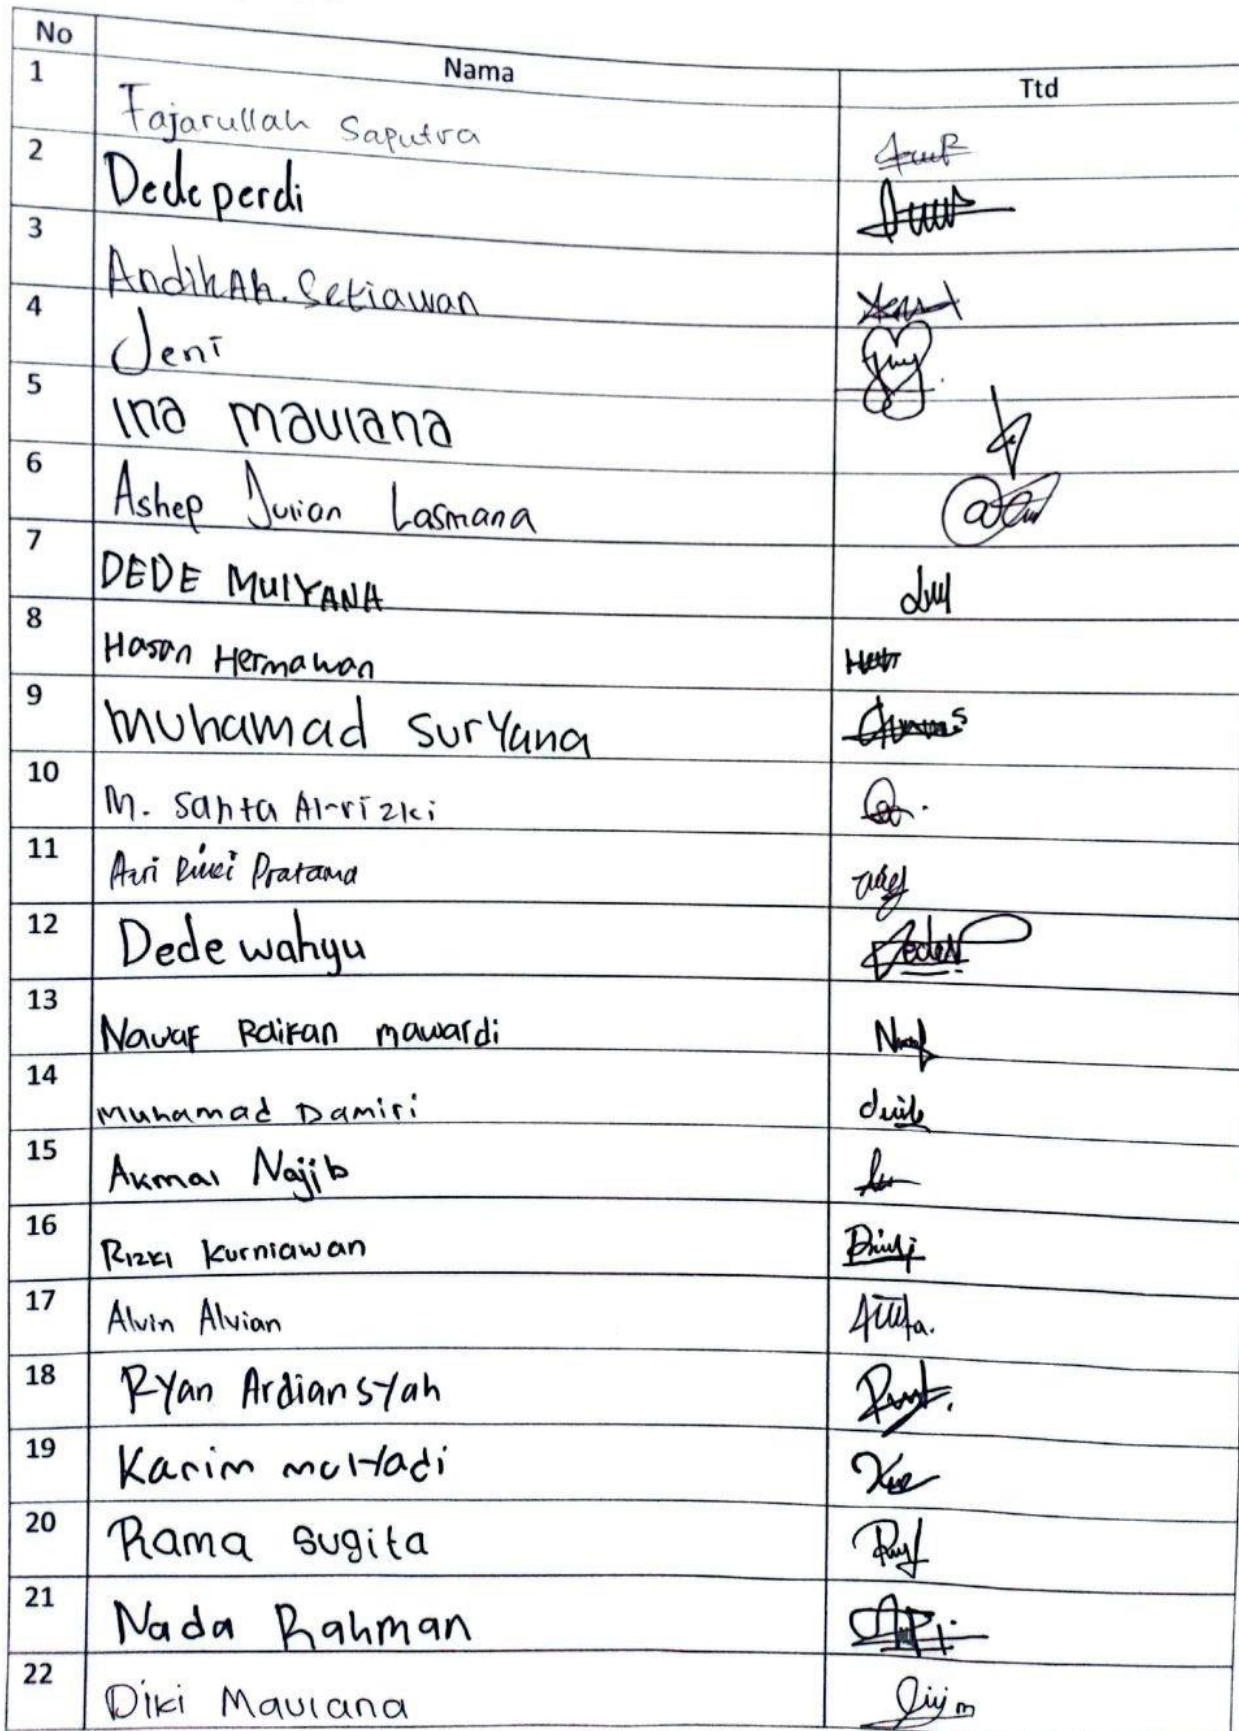 No Nama Ttd
1 Fajarullah Saputra
2 Dede perdi
3 AndikAh. Setiawan
4 Jeni
5 Ina maulana
6 Ashep Julian Lasmana
7 DEDE MulYANA
8 Hasan Hermawan
9 Muhamad SurYana
10 M. Santa Al-rizki
11 Azri Rizki Pratama
12 Dede wahyu
13 Nawaf Raifan mawardi
14 Muhamad Damiri
15 Akmal Najib
16 RIZKI Kurniawan
17 Alvin Alvian
18 RYan ArdiansYah
19 Karim mulYadi
20 Rama Sugita
21 Nada Rahman
22 Diki Maulana